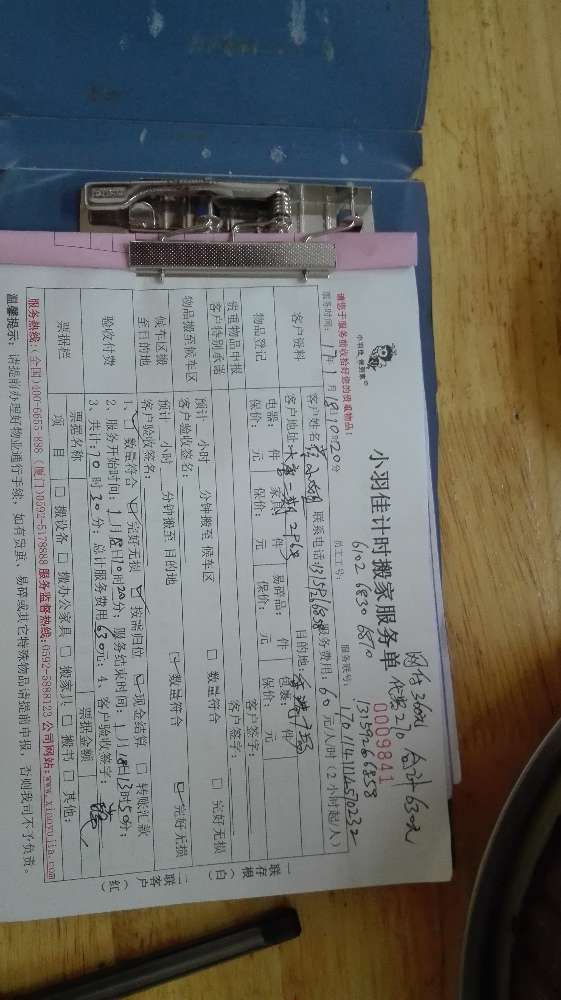 网付360元
代收270 合计630元
小羽佳计时搬家服务单
0009841
13159266858
6102 6830 6870
小羽佳 做到家
员工工号:
服务联号: 170114114510232
请您于服务前收拾好您的贵重物品!
服务时间: 1月1日10时20分
客户资料
客户姓名: 联系电话: 13159266858 服务费用: 60元/人/时(2小时起/人)
客户地址: 目的地:
物品登记
电器: 件 家具: 件 易碎品: 件 包裹: 件
保价: 元 保价: 元 保价: 元 保价: 元
贵重物品申报
客户特别承诺
客户签字:
客户签字:
物品搬至候车区
预计 小时 分钟搬至 候车区 □ 数量符合 □ 完好无损
客户验收签名:
候车区搬至目的地
预计 小时 分钟搬至 目的地 数量符合 完好无损
客户验收签名:
验收付费
1、数量符合 完好无损 按需归位 现金结算 □ 转账汇款
2、服务开始时间: 1月 日10时20分; 服务结束时间: 1月 日13时50分;
3、共计: 时30分; 总计服务费用630元; 4、客户验收签字:
票据栏
票据名称 票据金额
项 目 □ 搬设备 □ 搬办公家具 □ 搬家具 □ 搬书 □ 其他:
一联存根(白) 二联客户(红)
服务热线:(全国)400-6655-888 (厦门)0592-5178888 服务监督热线:0592-5888123 公司网站:www.xiaoyujia.com
温馨提示: 请提前办理好物业通行手续, 如有贵重、易碎或其它特殊物品请提前申报, 否则我司不予负责。